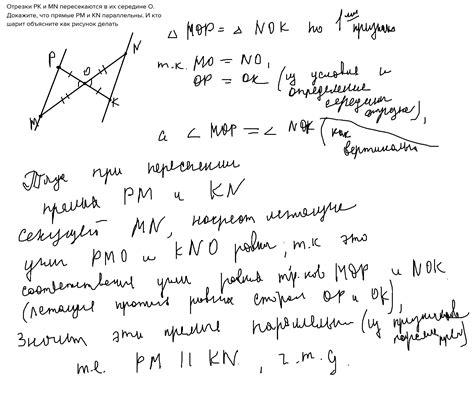 Отрезки PK и MN пересекаются в их середине O.
Докажите, что прямые PM и KN параллельны. И кто
шарит объясните как рисунок делать
P
N
O
M
K
△ MOP = △ NOK по 1ому признаку
т.к. MO = NO,
OP = OK (из условия и
определения
середины
отрезка),
а ∠ MOP = ∠ NOK (как
вертикальные
Тогда при пересечении
прямых PM и KN
секущей MN, накрест лежащие
углы PMO и KNO равны, т.к это
соответственные углы равных тр.ков MOP и NOK
(лежащие против равных сторон OP и OK),
Значит эти прямые параллельны (из признаков
паралл.
прям)
т.е. PM || KN, ч.т.д